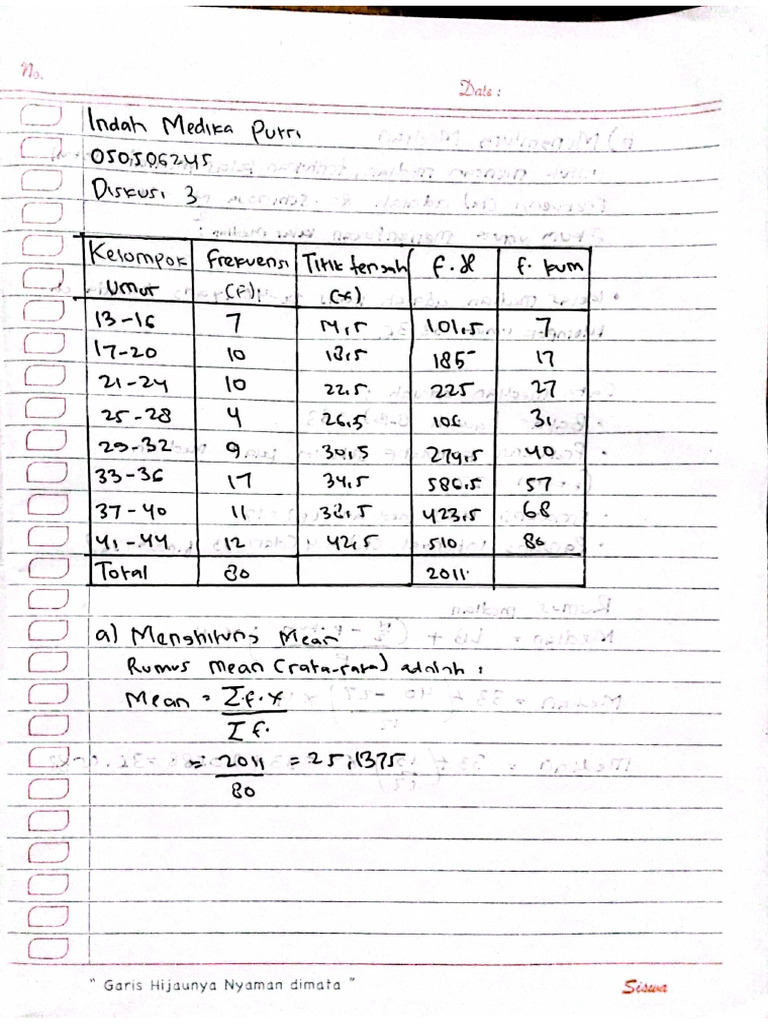 No.
Date:
Indah Medika Putri
050506245
Diskusi 3
Kelompok Umur | Frekuensi (f)i | Titik tengah (x) | f.x | f. kum
13-16 | 7 | 14,5 | 101,5 | 7
17-20 | 10 | 18,5 | 185 | 17
21-24 | 10 | 22,5 | 225 | 27
25-28 | 4 | 26,5 | 106 | 31
29-32 | 9 | 30,5 | 279,5 | 40
33-36 | 17 | 34,5 | 586,5 | 57
37-40 | 11 | 38,5 | 423,5 | 68
41-44 | 12 | 42,5 | 510 | 80
Total | 80 | 2011
a) Menghitung Mean
Rumus mean (rata-rata) adalah :
Mean = Σf.x / Σf.
= 2011 / 80 = 25,1375
" Garis Hijaunya Nyaman dimata "
Siswa